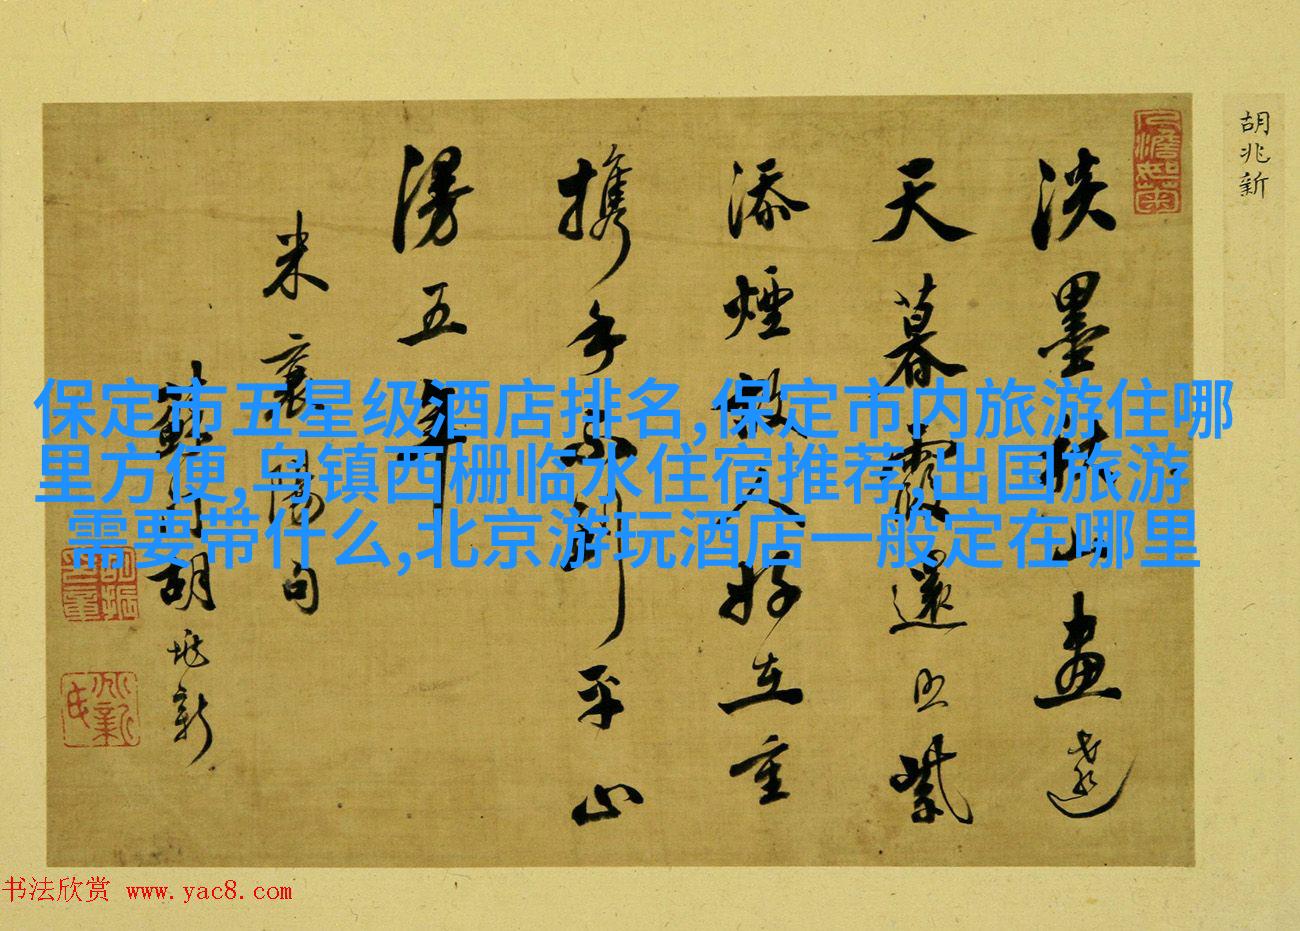 胡兆新
淡墨秋山畫遠
天暮霞還照紫
添煙故人好在重
携手不到平山
漫五年
米襄陽句
胡兆新
保定市五星级酒店排名,保定市内旅游住哪
里方便,乌镇西栅临水住宿推荐,出国旅游
需要带什么,北京游玩酒店一般定在哪里
书法欣赏 www.yac8.com